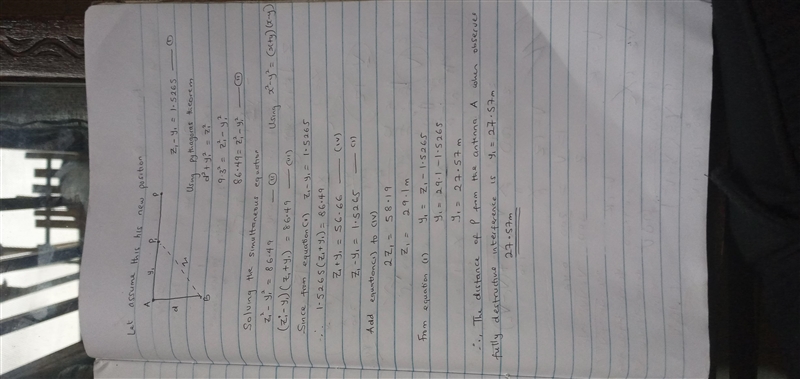 Let assume this his new position
A
y₁
P₁
P
d
z₁
B
z₁ - y₁ = 1.5265 —— (I)
Using pythagoras theorem
d² + y₁² = z₁²
9.3² = z₁² - y₁²
86.49 = z₁² - y₁² —— (II)
Solving the simultaneous equation
z₁² - y₁² = 86.49 —— (II) Using x² - y² = (x+y)(x-y)
(z₁ - y₁)(z₁ + y₁) = 86.49 —— (III)
Since from equation (I) z₁ - y₁ = 1.5265
∴ 1.5265(z₁ + y₁) = 86.49
z₁ + y₁ = 56.66 —— (IV)
z₁ - y₁ = 1.5265 —— (I)
Add equation (I) to (IV)
2z₁ = 58.19
z₁ = 29.1m
From equation (I) y₁ = z₁ - 1.5265
y₁ = 29.1 - 1.5265
y₁ = 27.57m
∴ The distance of P from the antenna A when observer
fully destructive interference is y₁ = 27.57m
27.57m